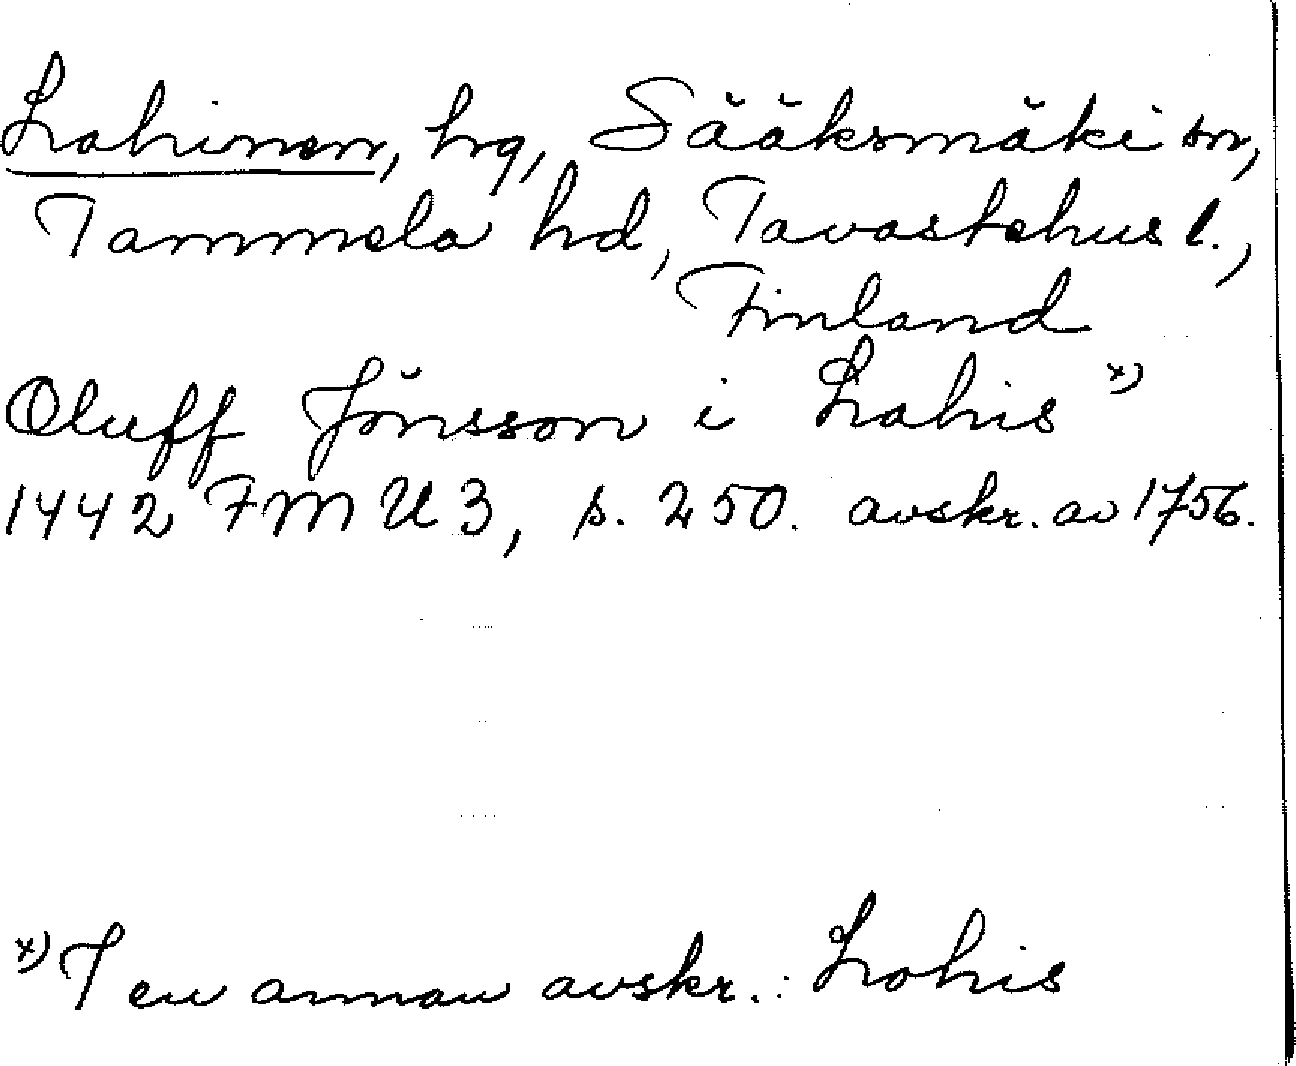 Lahinen, hg, Sääksmäki sn,
Tammela hd, Tavastehus l.,
Finland
Oluff Jönsson i Lahis x)
1442 FMU 3, s. 250. avskr. av 1756.
x) I en annan avskr.: Lohis